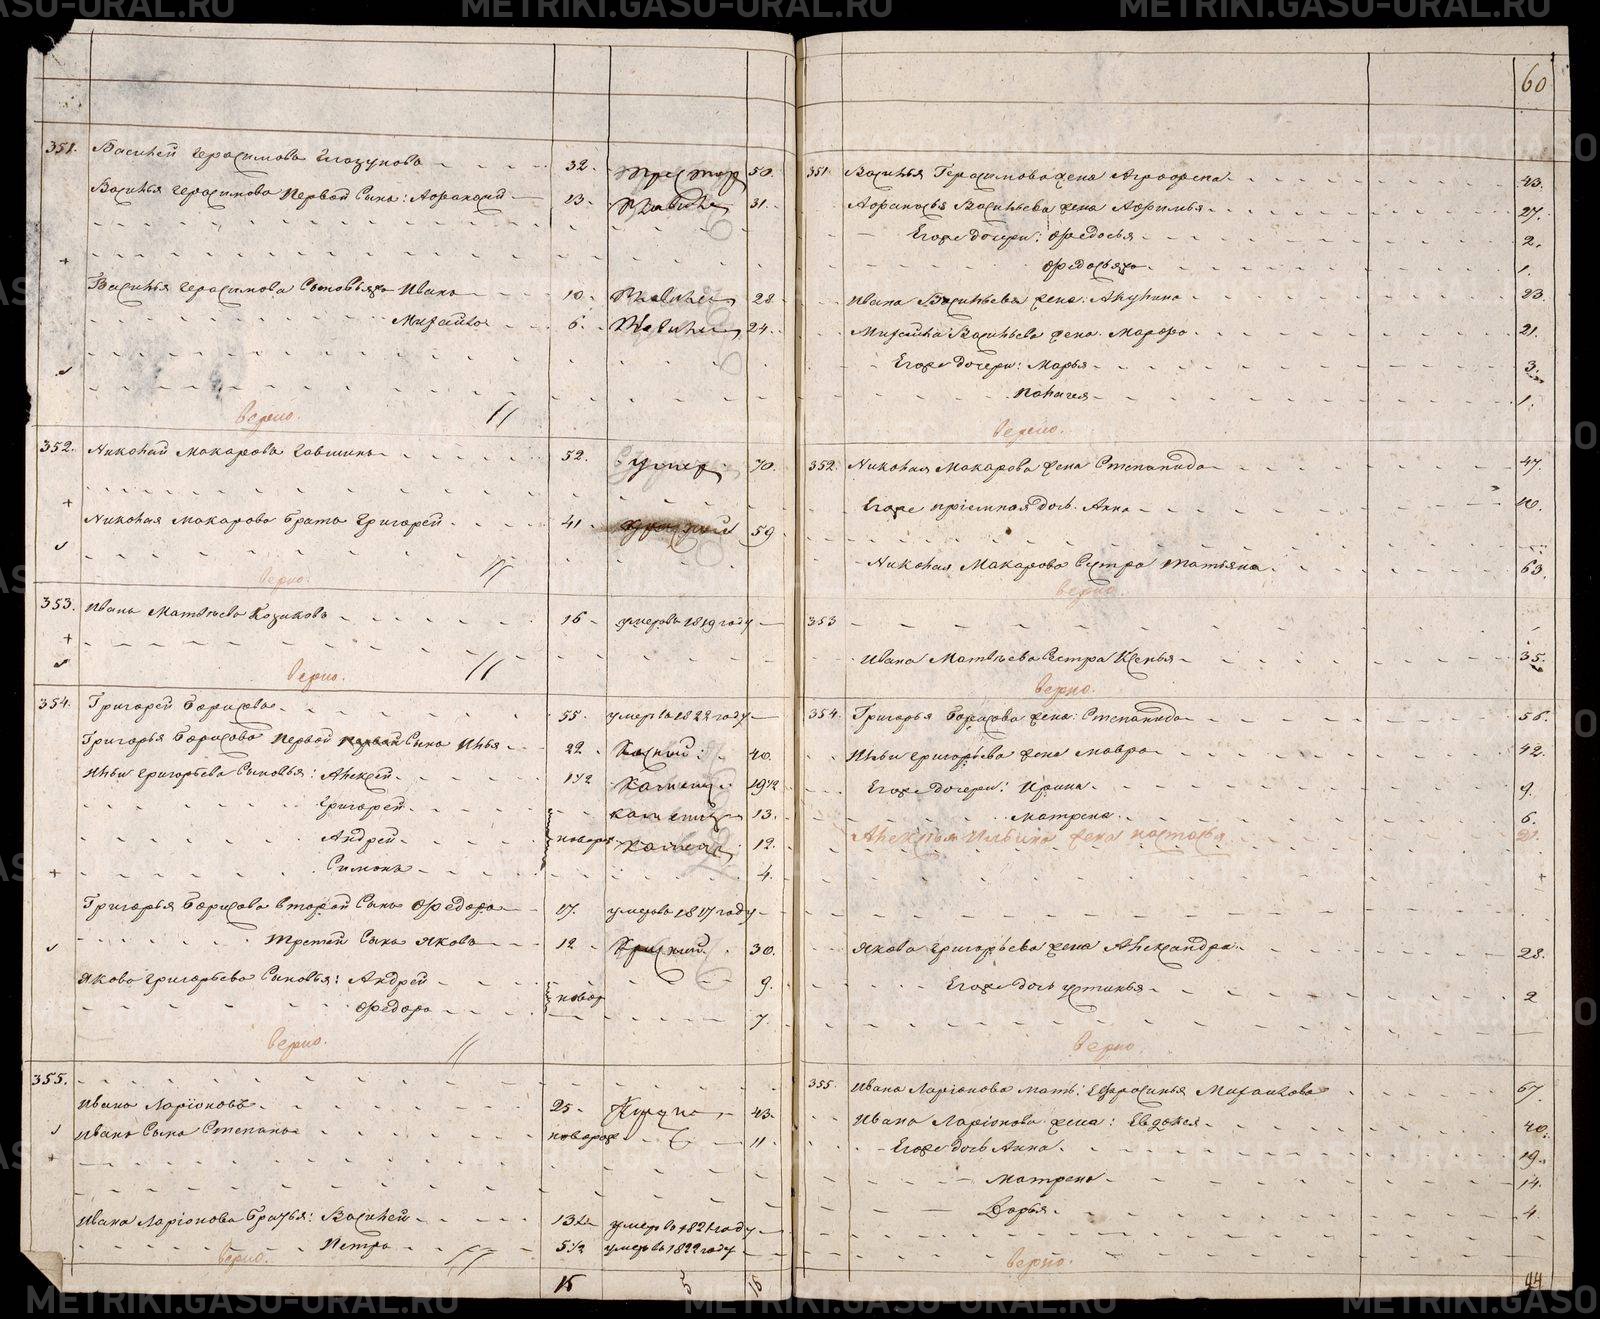 METRIKI.GASU-URAL.RU
60
351. Василей Герасимовъ Глазуновъ 32. 50.
Василья Герасимова Первой Сынъ: Афонасей 13. 31.
Василья Герасимова Сыновья Иванъ 10. 28
Михайло 6. 24.
верно.
352. Николай Макаровъ 52. умер 70.
Николая Макарова братъ Григорей 41. 59
верно.
353. Иванъ Матвѣевъ Козиковъ 16 умеръ въ 1819 году
верно.
354. Григорей Борисовъ 55. умеръ въ 1822 году
Григорья Борисова Первой Сынъ Илья 22 40.
Ильи Григорьева Сыновья: Алексей 1 1/2 19 1/2
Григорей 13.
Андрей новорож 12.
Симонъ 4.
Григорья Борисова второй Сынъ Федоръ 17. умеръ въ 1817 году
третей Сынъ Яковъ 12 30.
Якова Григорьева Сыновья: Андрей 9.
Федоръ новор 7.
верно.
355.
Иванъ Ларіоновъ 25 43.
Ивана Сынъ Степанъ новорож 11
Ивана Ларіонова братья: Василей 13 1/2 умеръ въ 1821 году
Петръ 5 1/2 умеръ въ 1822 году
верно.
15 5 15
351 Василья Герасимова жена Аграфена 43.
Афонасья Васильева жена Афимья 27.
Егоже дочери: Федосья 2.
Федосьяжъ 1.
Ивана Васильева жена: Акулина 23.
Михайла Васильева жена: Марфа 21.
Егоже дочери: Марья 3.
Полагея 1.
верно.
352. Николая Макарова жена Степанида 47.
Егоже пріемная дочь Анна 10.
Николая Макарова Сестра Татьяна 63.
верно.
353
Ивана Матвѣева Сестра Ксенья 35.
верно.
354. Григорья Борисова жена: Степанида 56.
Ильи Григорьева жена Мавра 42.
Егоже дочери: Ирина 9.
Матрена 6.
Алексея Ильина жена Настасья 21.
Якова Григорьева жена Александра 28.
Егоже дочь Устинья 2
верно.
355. Ивана Ларіонова мать: Ефросинья Михайлова 67.
Ивана Ларіонова жена: Евдокея 40.
Егоже дочь Анна 19.
Матрена 14.
Дарья 4.
верно.